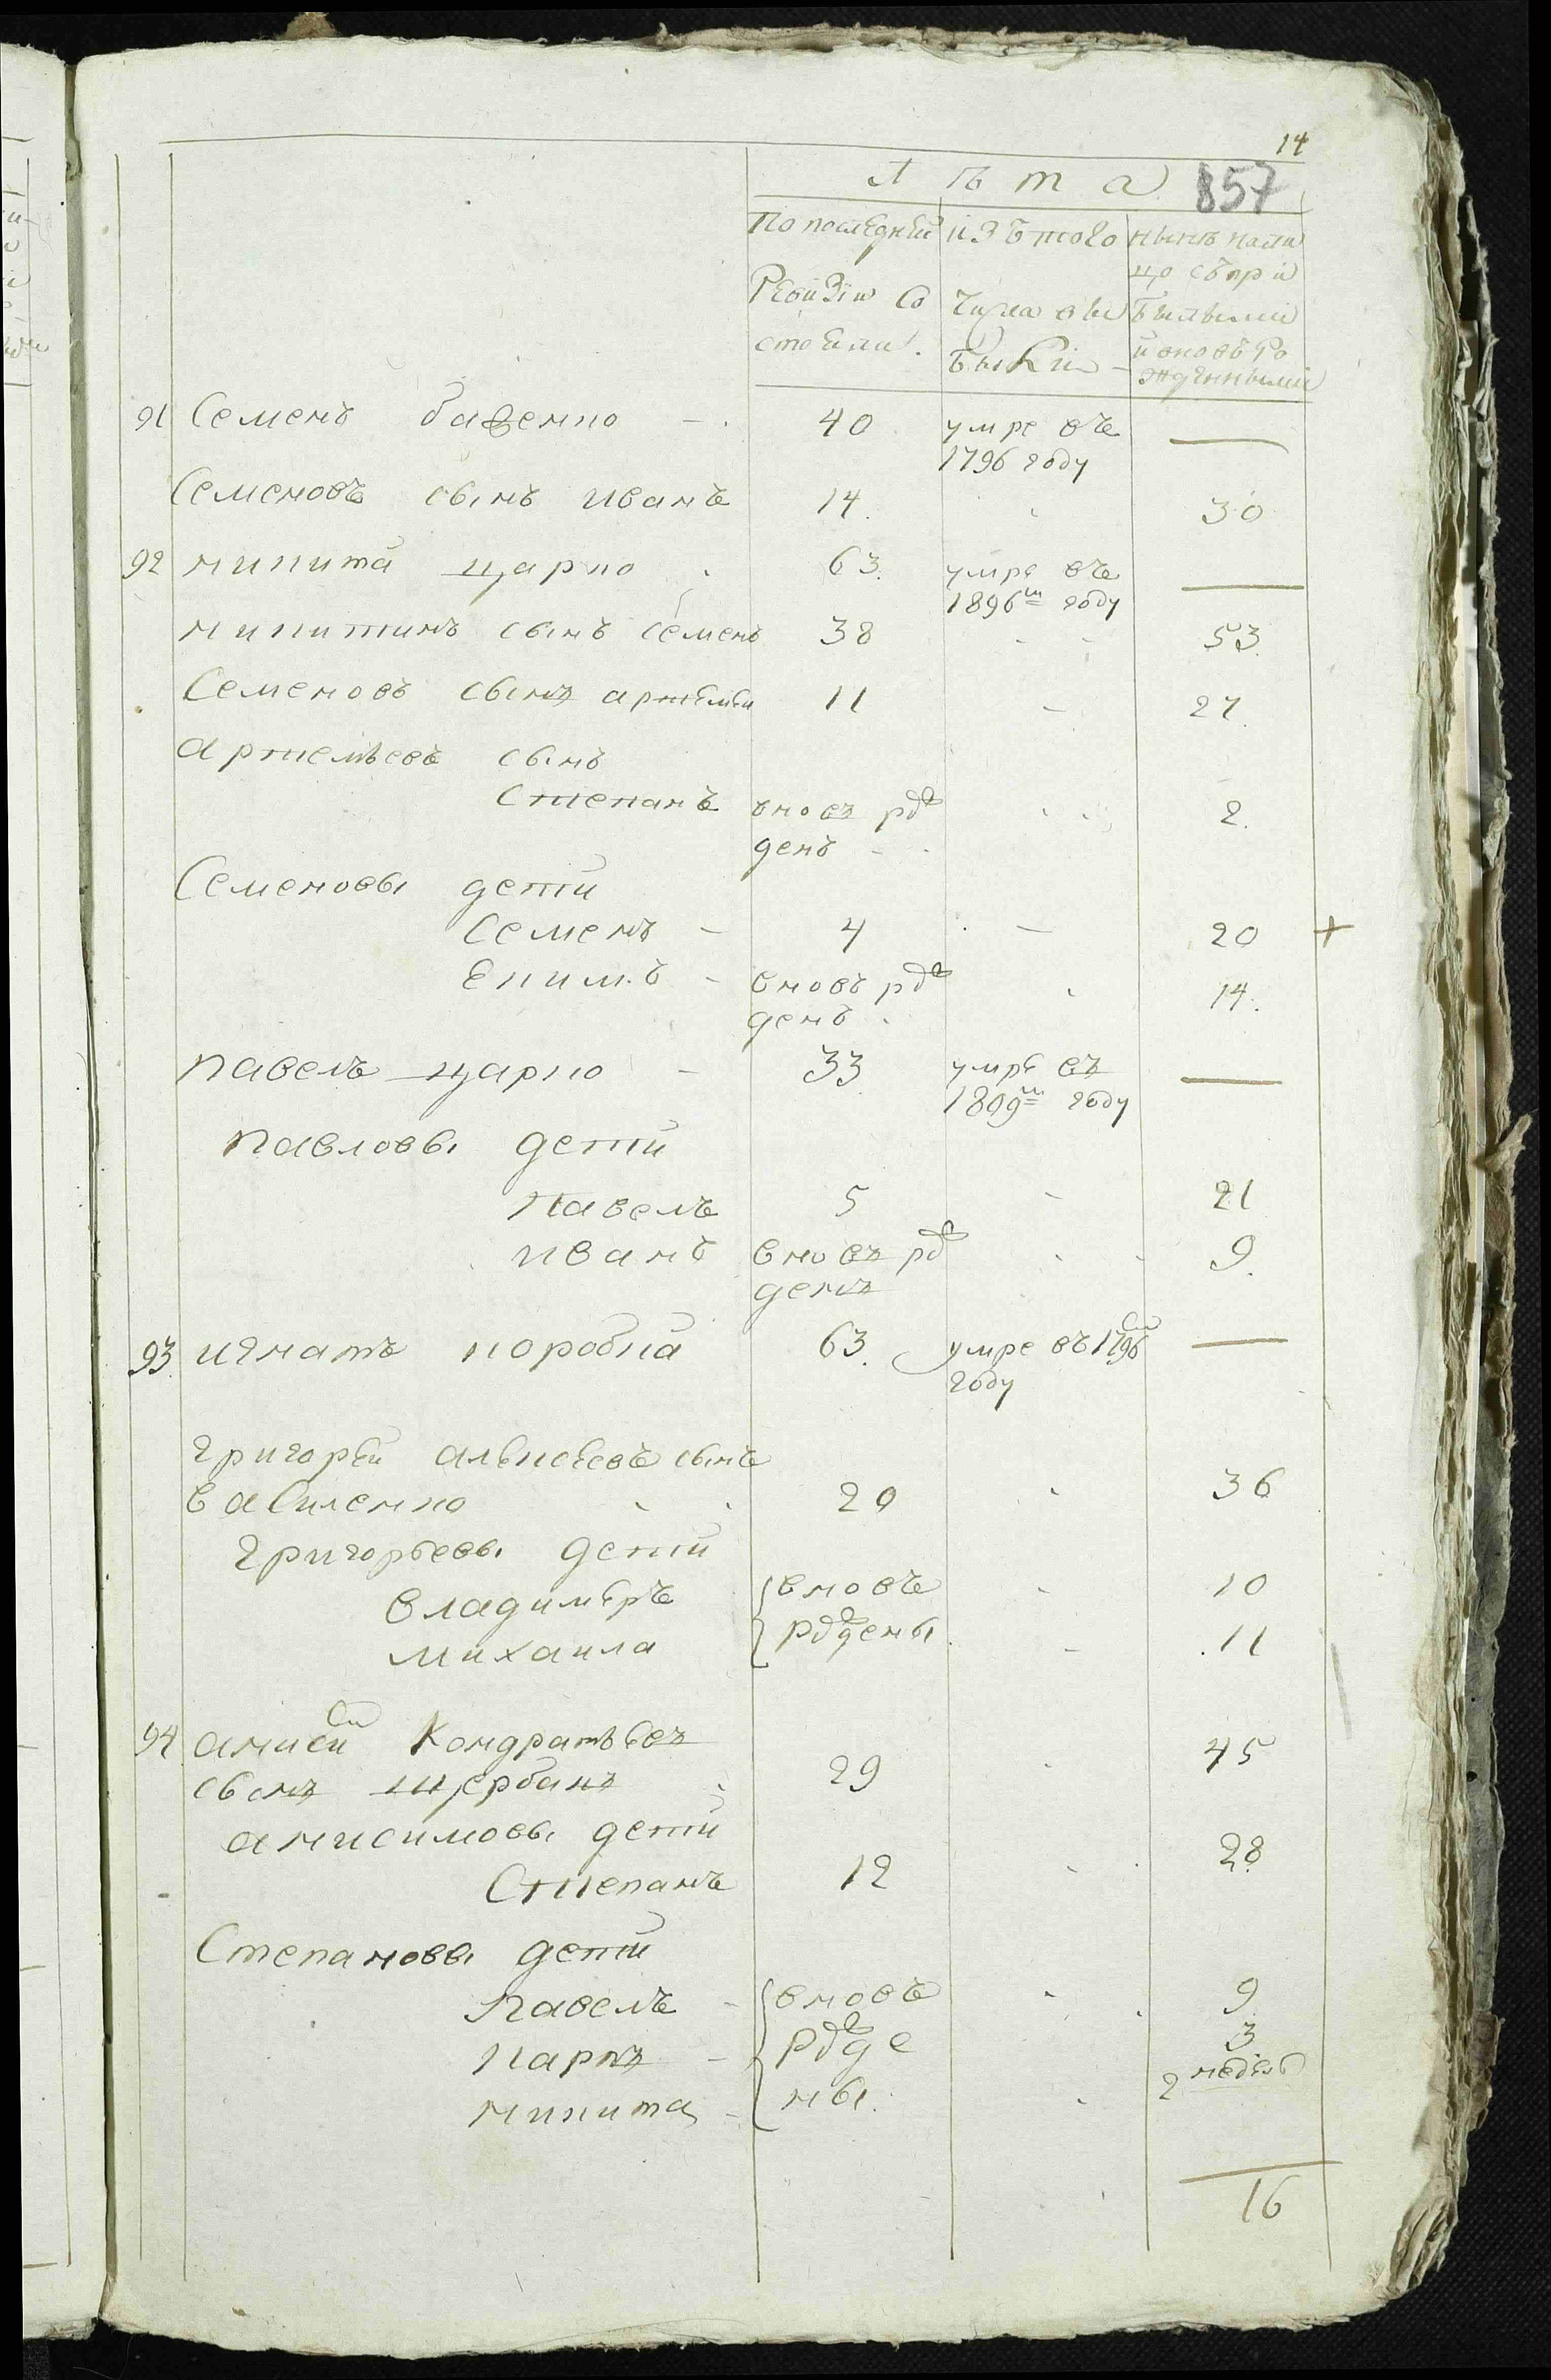 14
Лѣта 857
По последней Ревизіи состояли. изъ того числа выбыли - нынѣ на лицо съ прибылыми и вновь рожденными
91 Семенъ 40 умре въ —
1796 году
Семеновъ сынъ иванъ 14. 30
92 никита царко 63. умре въ —
1896го году
никитинъ сынъ семенъ 38 53.
Семеновъ сынъ артемеи 11 27.
артемьевъ сынъ
Степанъ вновъ рож 2.
денъ
Семеновы дети
Семенъ - 4 — 20 +
Екимъ - вновъ рож 14.
денъ
павелъ царко - 33 умре въ —
1809го году
павловы дети
павелъ 5 21
иванъ вновъ рож 9.
денъ
93. игнатъ коробка 63. умре въ 1796 —
году
григореи алексеевъ сынъ
василенко 20 36
григорьевы дети
владимеръ вновъ 10
михаила рождены 11
94 анисеи Кондратьевъ
сынъ щербанъ 29 45
анисимовы дети
Степанъ 12 28
Степановы дети
павелъ - вновъ 9
карпъ - рожде 3
никита - ны. 2 неделъ
16